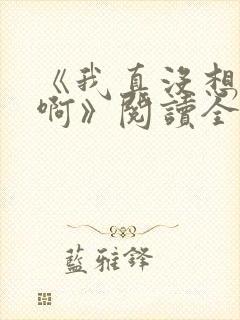 《我真沒想
啊》閱讀全
藍雅鋒